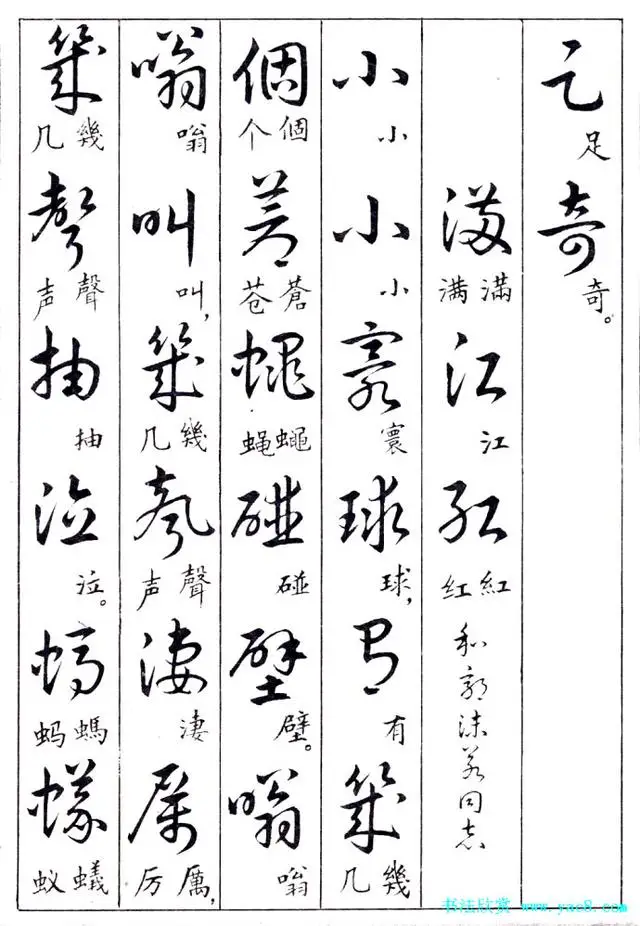 足奇
足 奇。
滿江紅
满滿 江 红紅
和郭沫若同志
小小寰球有幾
小 小 寰 球, 有 几幾
個蒼蠅碰壁嗡
个個 苍蒼 蝇蠅 碰 壁。 嗡
嗡叫幾聲淒厲
嗡 叫, 几幾 声聲 淒 厉厲,
幾聲抽泣螞蟻
几幾 声聲 抽 泣。 蚂螞 蚁蟻
书法欣赏 www.yac8.com